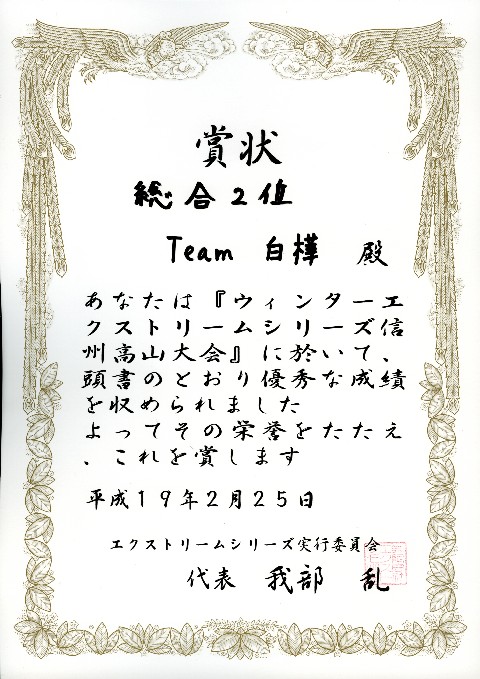 賞状
総合2位
Team 白樺 殿
あなたは『ウィンターエ
クストリームシリーズ信
州高山大会』に於いて、
頭書のとおり優秀な成績
を収められました
よってその栄誉をたたえ
、これを賞します
平成19年2月25日
エクストリームシリーズ実行委員会
代表 我部 乱